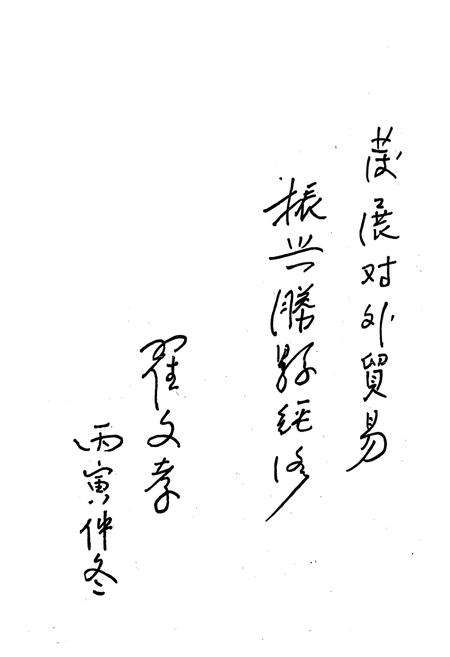 发展对外貿易
振兴滕县经济
翟文孝
丙寅仲冬